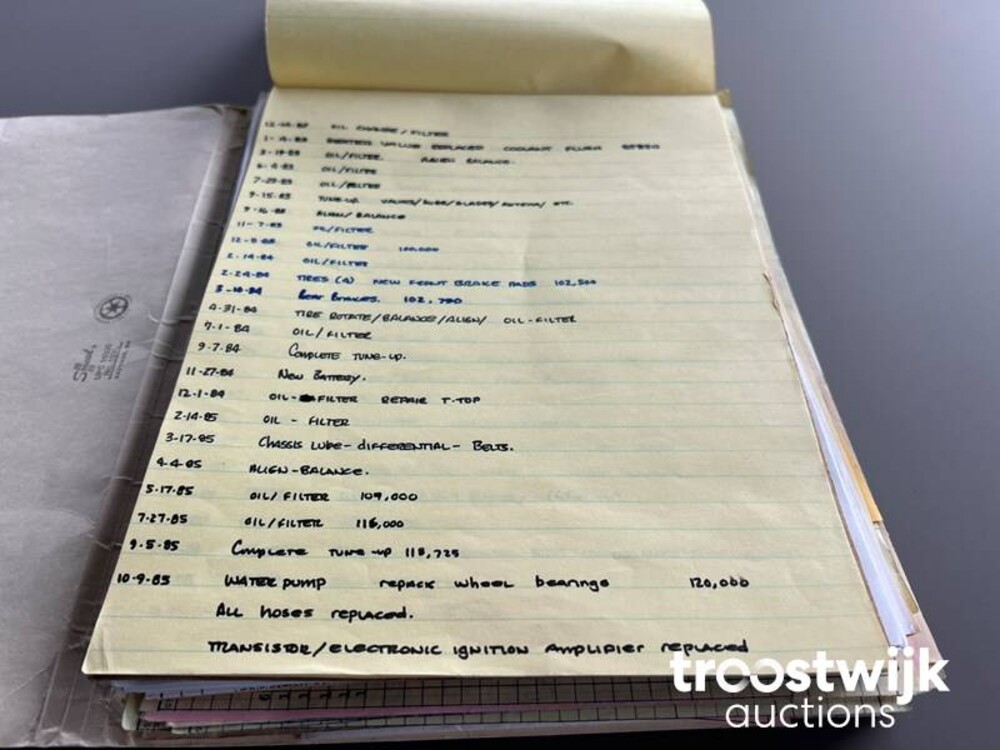 OIL CHANGE/FILTER
HEATER VALVE REPLACED COOLANT FLUSH
OIL/FILTER BALANCE.
OIL/FILTER
7-29-83 OIL/FILTER
9-15-83 TUNE-UP VALVES/LUBE/BLADES/ANTENNA/ ETC.
ALIGN/BALANCE
11-7-83 OIL/FILTER
OIL/FILTER 100,000
2-14-84 OIL/FILTER
2-24-84 TIRES (4) NEW FRONT BRAKE PADS 102,500
3-10-84 Rear BRAKES. 102,790
4-31-84 TIRE ROTATE/BALANCE/ALIGN/ OIL-FILTER
7-1-84 OIL/FILTER
9.7.84 COMPLETE TUNE-UP.
11-27-84 NEW BATTERY.
12-1-84 OIL-FILTER REPAIR T-TOP
2-14-85 OIL - FILTER
3-17-85 CHASSIS LUBE-DIFFERENTIAL- BELTS.
4-4-85 ALIGN-BALANCE.
5-17-85 OIL/FILTER 109,000
7-27-85 OIL/FILTER 116,000
9-5-85 Complete TUNE-UP 118,725
10-9-85 WATER PUMP repack wheel bearings 120,000
All hoses replaced.
TRANSISTOR/ELECTRONIC IGNITION AMPLIFIER replaced
troostwijk
auctions